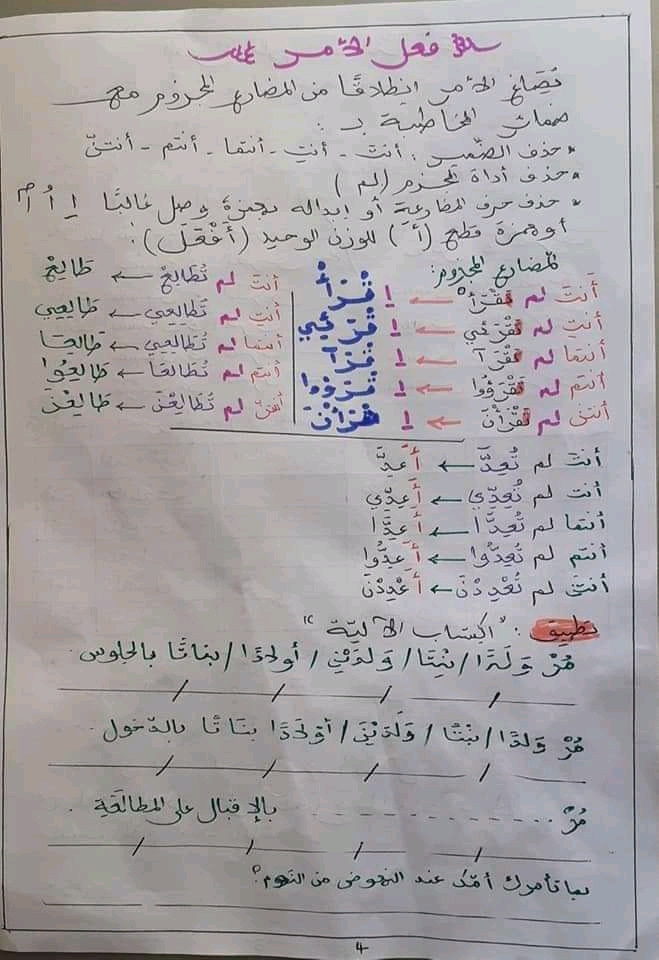 فعل الأمر
نصاغ الأمر انطلاقًا من المضارع المجزوم مع
ضمائر المخاطبة بـ :
* حذف الضمير : أنتَ - أنتِ - أنتما - أنتم - أنتنّ
* حذف أداة الجزم (لم)
* حذف حرف المضارعة أو إبداله بهمزة وصل غالبًا اِ اُ
أو همزة قطع (أَ) للوزن الوحيد (أَفْعَلَ) :
المضارع المجزوم:
أنتَ لم تَقْرَأْ ← اِقْرَأْ
أنتِ لم تَقْرَئي ← اِقْرَئي
أنتما لم تَقْرَآ ← اِقْرَآ
أنتم لم تَقْرَؤُوا ← اِقْرَؤوا
أنتنّ لم تَقْرَأْنَ ← اِقْرَأْنَ
أنتَ لم تُطَالِعْ ← طَالِعْ
أنتِ لم تُطَالِعِي ← طَالِعِي
أنتما لم تُطَالِعَا ← طَالِعَا
أنتم لم تُطَالِعَا ← طَالِعُوا
أنتنّ لم تُطَالِعْنَ ← طَالِعْنَ
أنتَ لم تُعِدَّ ← أَعِدَّ
أنتِ لم تُعِدِّي ← أَعِدِّي
أنتما لم تُعِدَّا ← أَعِدَّا
أنتم لم تُعِدُّوا ← أَعِدُّوا
أنتنّ لم تُعْدِدْنَ ← أَعْدِدْنَ
تطبيق : "اكتساب الآلية"
مُرْ وَلَدًا / بِنْتًا / وَلَدَيْنِ / أولادًا / بناتًا بالجلوس
/ / / /
مُرْ ولدًا / بنْتًا / وَلَدَيْنِ / أوْلَادًا بنَاتًا بالدّخول
/ / / /
مُرْ ............ بالإقبال على المطالَعَةِ .
/ / / /
بما تأمرك أمّك عند النهوض من النّوم؟
4